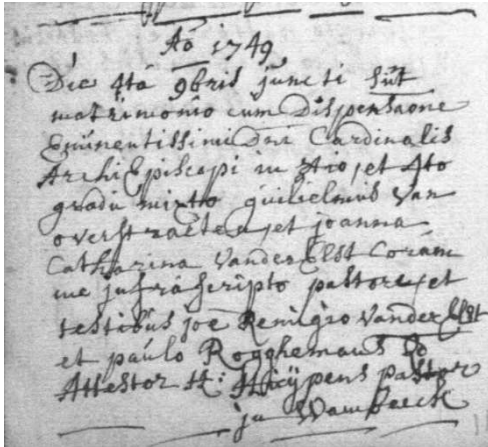 Aö 1749
Die 4ta 9bris juncti sūt
matrimonio cum Dispensaone
Eminentissimi Dni Cardinalis
ArchiEpiscopi in 3tio, et 4to
gradu mixto guilielmus Van
overstraeten, et joanna
Catharina VanderElst Coram
me infrascripto pastore, et
testibus joe Remigio VanderElst
et paulo Rogghemans
Attestor pastor
in Wambeeck